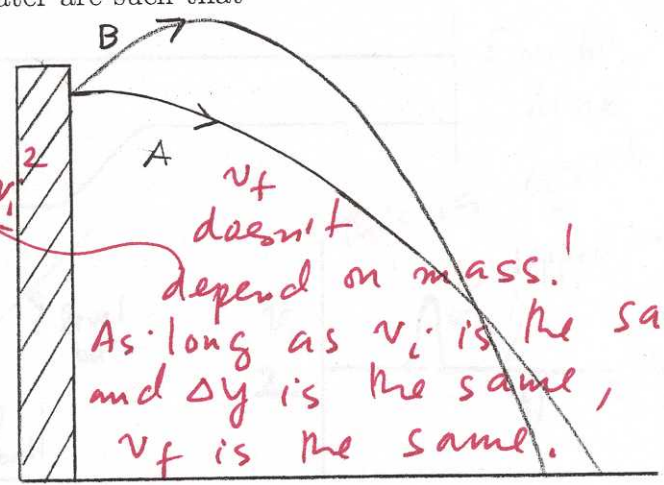 are such that
B
A
2
v_f
doesn't
depend on mass!
As long as v_i is the sa
and Δy is the same,
v_f is the same.